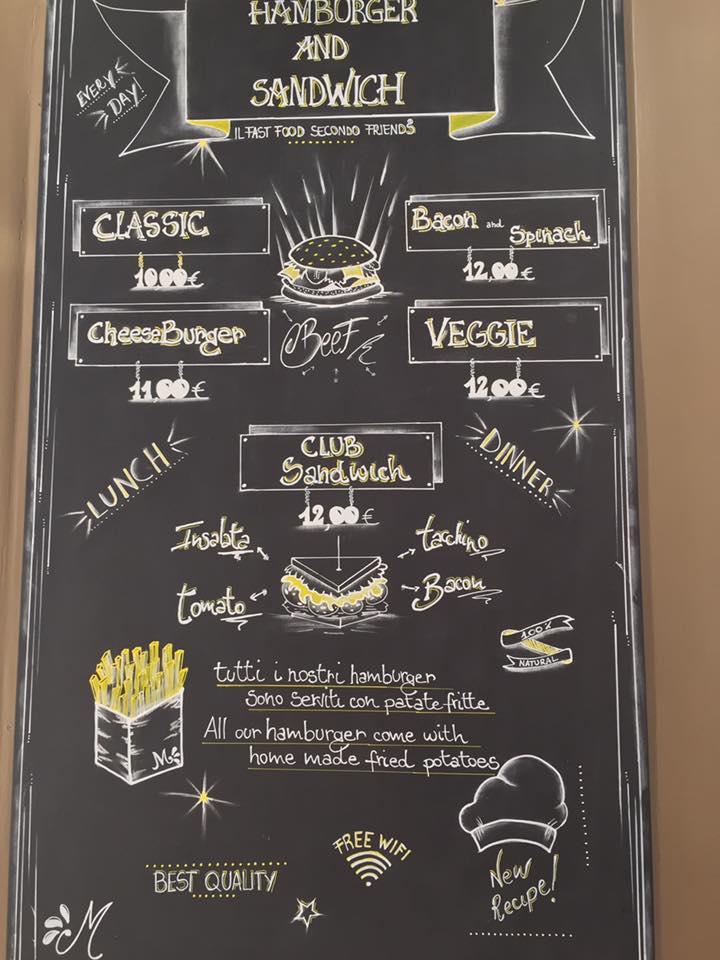 HAMBURGER
AND
SANDWICH
EVERY
DAY!
IL FAST FOOD SECONDO FRIENDS
CLASSIC
10,00€
Bacon and Spinach
12,00€
CheeseBurger
11,00€
BEEF
VEGGIE
12,00€
LUNCH
DINNER
CLUB
Sandwich
12,00€
Insalata
tacchino
tomato
Bacon
100%
NATURAL
tutti i nostri hamburger
sono serviti con patate fritte
All our hamburger come with
home made fried potatoes
M
FREE WIFI
BEST QUALITY
New
Recipe!
M